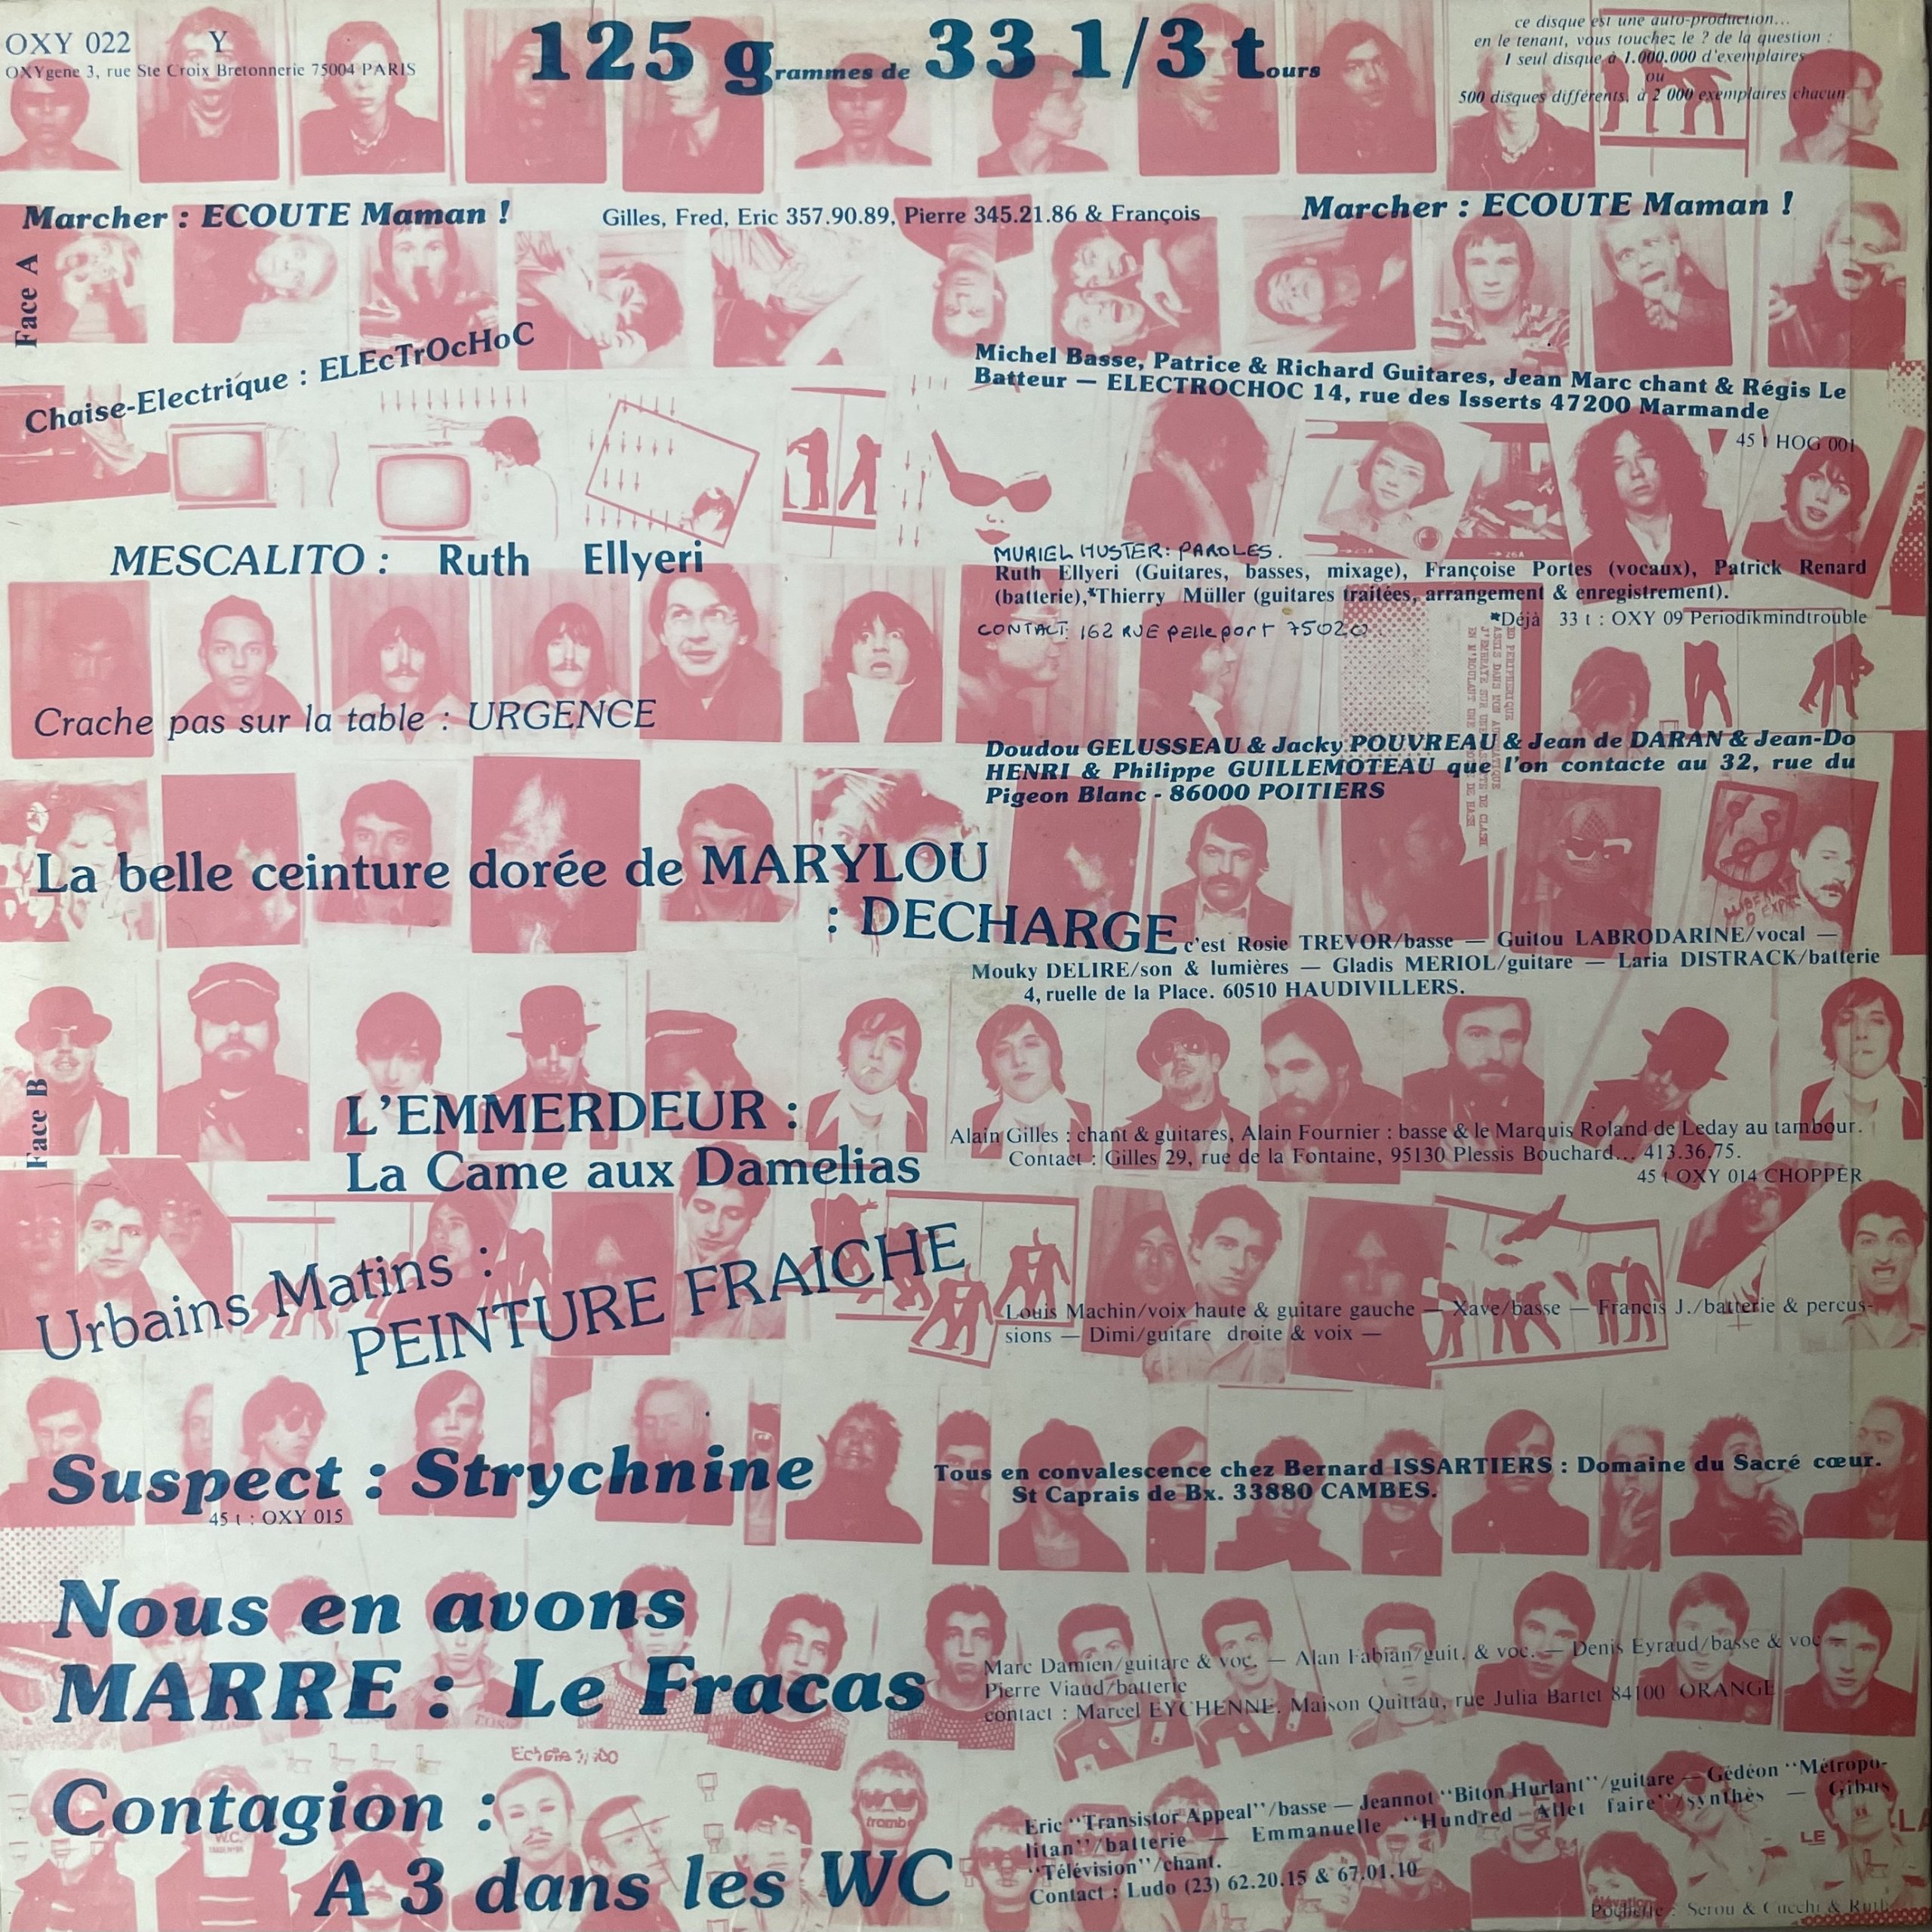 OXY 022
Y
OXYgene 3, rue Ste Croix Bretonnerie 75004 PARIS
125 grammes de 33 1/3 tours
ce disque est une auto-production...
en le tenant, vous touchez le ? de la question :
1 seul disque à 1.000.000 d'exemplaires
ou
500 disques différents, à 2 000 exemplaires chacun.
Face A
Marcher : ECOUTE Maman !
Gilles, Fred, Eric 357.90.89, Pierre 345.21.86 & François
Marcher : ECOUTE Maman !
Chaise-Electrique : ELEcTrOcHoC
Michel Basse, Patrice & Richard Guitares, Jean Marc chant & Régis Le
Batteur — ELECTROCHOC 14, rue des Isserts 47200 Marmande
45 t HOG 001
MESCALITO : Ruth Ellyeri
MURIEL HUSTER: PAROLES.
Ruth Ellyeri (Guitares, basses, mixage), Françoise Portes (vocaux), Patrick Renard
(batterie),*Thierry Müller (guitares traitées, arrangement & enregistrement).
*Déjà 33 t : OXY 09 Periodikmindtrouble
CONTACT: 162 RUE pelleport 75020
Crache pas sur la table : URGENCE
Doudou GELUSSEAU & Jacky POUVREAU & Jean de DARAN & Jean-Do
HENRI & Philippe GUILLEMOTEAU que l'on contacte au 32, rue du
Pigeon Blanc - 86000 POITIERS
La belle ceinture dorée de MARYLOU
: DECHARGE
c'est Rosie TREVOR/basse — Guitou LABRODARINE/vocal —
Mouky DELIRE/son & lumières — Gladis MERIOL/guitare — Laria DISTRACK/batterie
4, ruelle de la Place. 60510 HAUDIVILLERS.
Face B
L'EMMERDEUR :
La Came aux Damelias
Alain Gilles : chant & guitares, Alain Fournier : basse & le Marquis Roland de Leday au tambour.
Contact : Gilles 29, rue de la Fontaine, 95130 Plessis Bouchard... 413.36.75.
45 t OXY 014 CHOPPER
Urbains Matins :
PEINTURE FRAICHE
Louis Machin/voix haute & guitare gauche — Xave/basse — Francis J./batterie & percus-
sions — Dimi/guitare droite & voix —
Suspect : Strychnine
45 t : OXY 015
Tous en convalescence chez Bernard ISSARTIERS : Domaine du Sacré cœur.
St Caprais de Bx. 33880 CAMBES.
Nous en avons
MARRE : Le Fracas
Marc Damien/guitare & voc. — Alan Fabian/guit. & voc. — Denis Eyraud/basse & voc —
Pierre Viaud/batterie
contact : Marcel EYCHENNE. Maison Quittau, rue Julia Bartet 84100 ORANGE
Contagion :
A 3 dans les WC
Eric "Transistor Appeal"/basse — Jeannot "Biton Hurlant"/guitare — Gédéon "Métropo-
litan"/batterie — Emmanuelle "Hundred Allet faire"/synthès — Gibus
"Télévision"/chant.
Contact : Ludo (23) 62.20.15 & 67.01.10
LE
LA
Pochette : Serou & Cucchi & Ruth